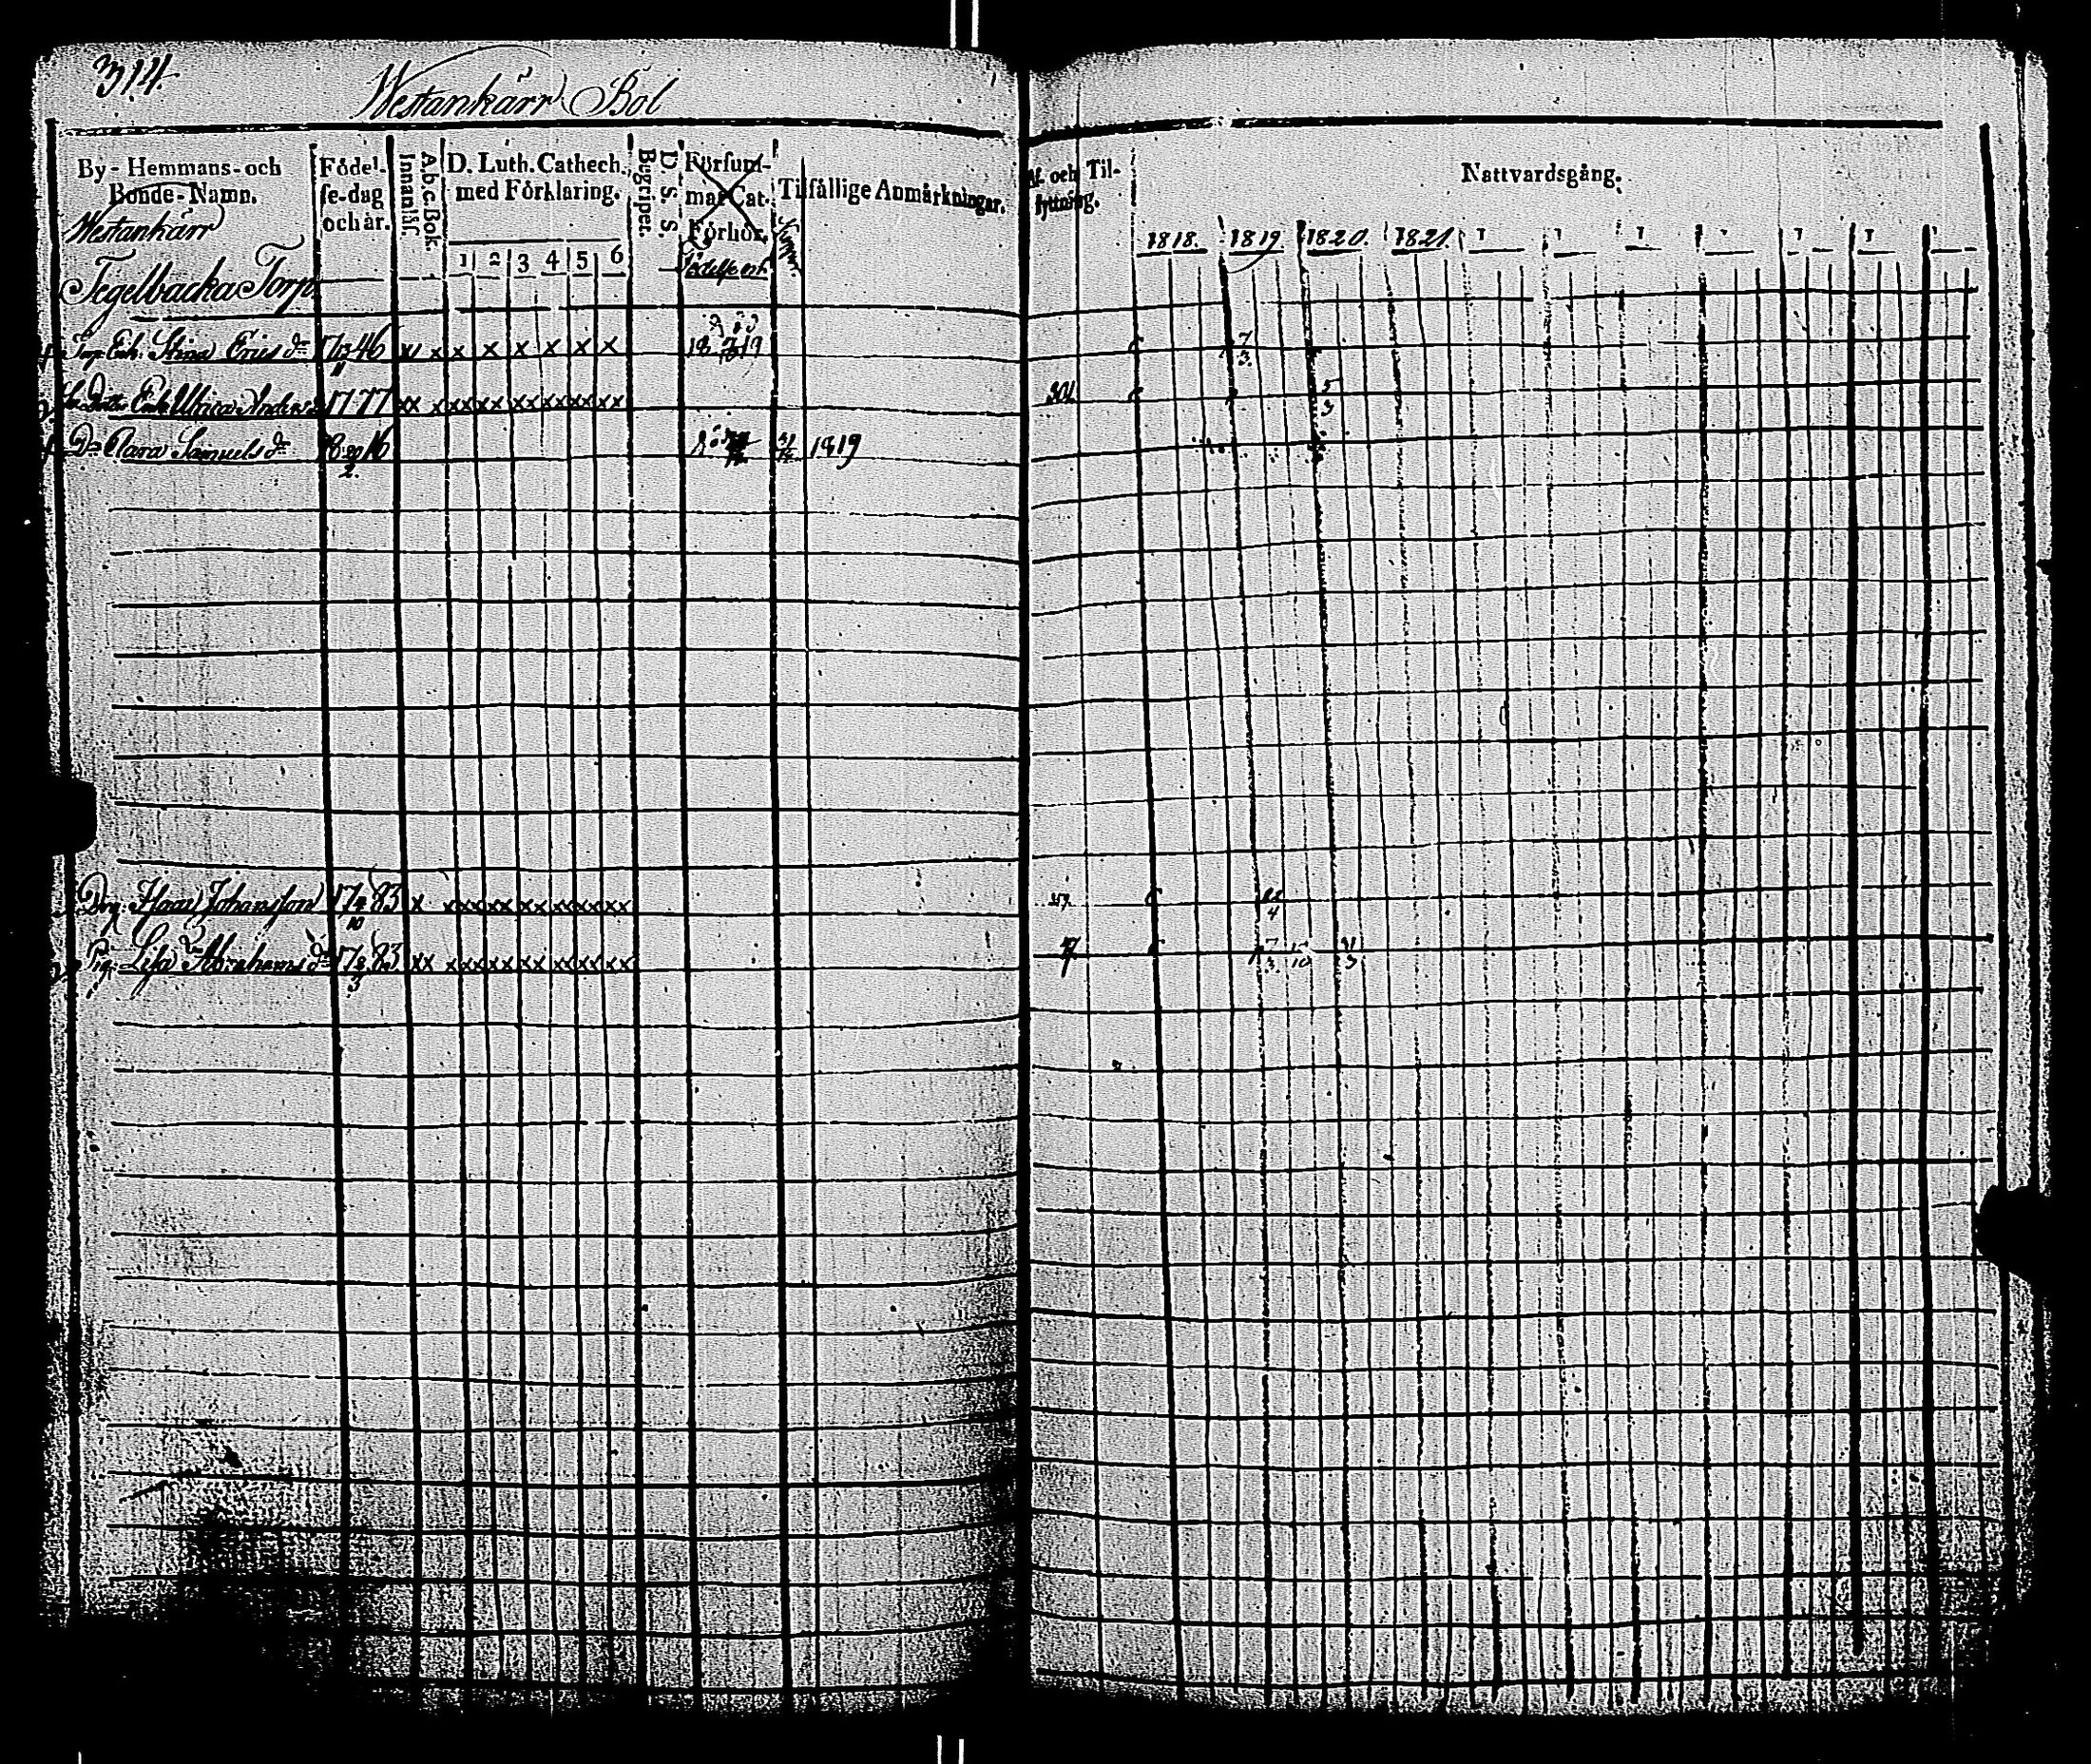 314.
Westankärr Bol
By-Hemmans- och Bonde-Namn.
Födelse-dag och år.
A.b.c. Bok.
Innanläs.
D. Luth. Cathech. med Förklaring.
1 2 3 4 5 6
D. S. S.
Begriper.
Försummat Cat. Förhör.
Tilfällige Anmärkningar.
Af- och Tilflyttning.
Nattvardsgång.
1818. 1819 1820. 1821.
Westankärr
Tegelbacka Torp
Torp Enk. Stina Ericsdr 17 13/11 46 x x x x x x x x 7/3.
Enk Ulrica Anders 1777 xx x xx xx xx xx xx xx 301 5/3
Dr Clara Samuelsdr 18 20/2. 16 1819
Drg. Johansson 17 83 x xx xx xx xx xx xx
Pig. Lisa Abrahamsdr 17 8/3 83 xx xx xx xx xx xx xx 7/3.